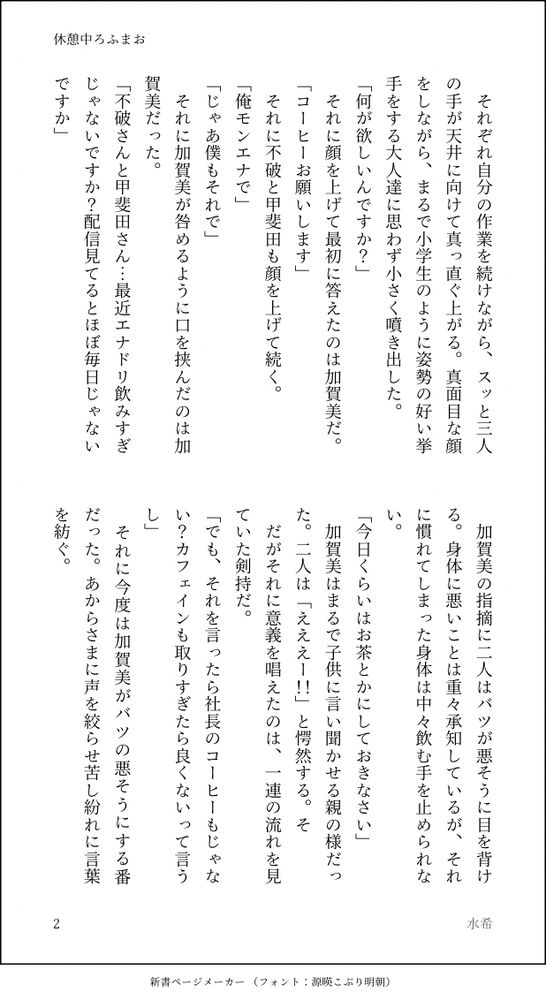 休憩中ろふまお
　それぞれ自分の作業を続けながら、スッと三人
の手が天井に向けて真っ直ぐ上がる。真面目な顔
をしながら、まるで小学生のように姿勢の好い挙
手をする大人達に思わず小さく噴き出した。
「何が欲しいんですか？」
　それに顔を上げて最初に答えたのは加賀美だ。
「コーヒーお願いします」
　それに不破と甲斐田も顔を上げて続く。
「俺モンエナで」
「じゃあ僕もそれで」
　それに加賀美が咎めるように口を挟んだのは加
賀美だった。
「不破さんと甲斐田さん…最近エナドリ飲みすぎ
じゃないですか？配信見てるとほぼ毎日じゃない
ですか」
　加賀美の指摘に二人はバツが悪そうに目を背け
る。身体に悪いことは重々承知しているが、それ
に慣れてしまった身体は中々飲む手を止められな
い。
「今日くらいはお茶とかにしておきなさい」
　加賀美はまるで子供に言い聞かせる親の様だっ
た。二人は「えええー!!」と愕然する。そ
　だがそれに意義を唱えたのは、一連の流れを見
ていた剣持だ。
「でも、それを言ったら社長のコーヒーもじゃな
い？カフェインも取りすぎたら良くないって言う
し」
　それに今度は加賀美がバツの悪そうにする番
だった。あからさまに声を絞らせ苦し紛れに言葉
を紡ぐ。
2
水希
新書ページメーカー（フォント：源暎こぶり明朝）